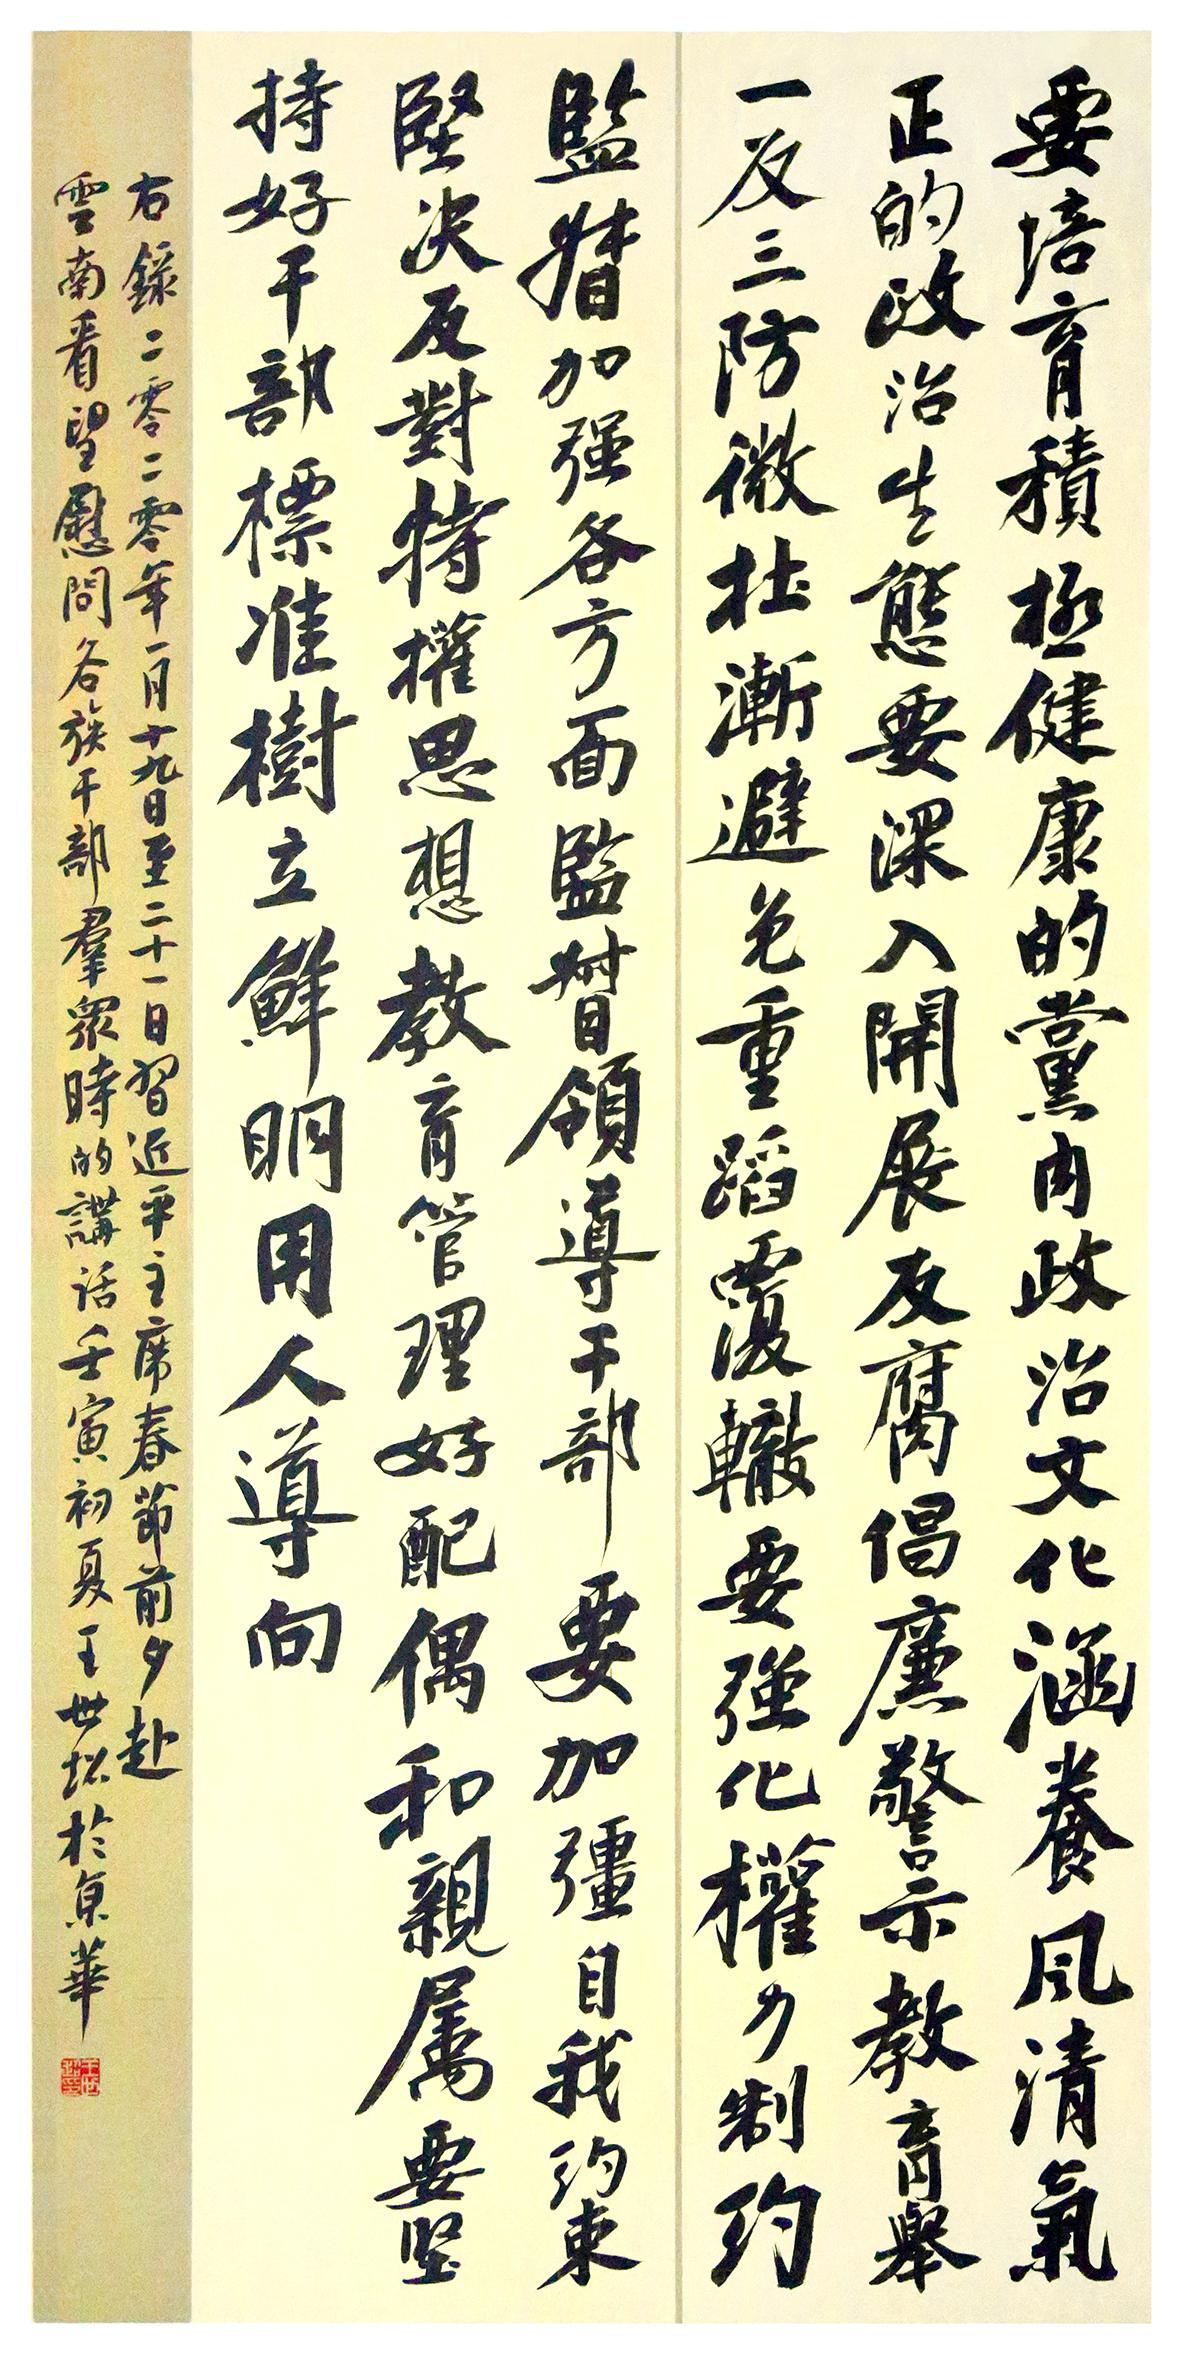 要培育積極健康的黨内政治文化涵養風清氣
正的政治生態要深入開展反腐倡廉警示教育舉
一反三防微杜漸避免重蹈覆轍要強化權力制約
監督加强各方面監督領導干部要加彊自我約束
堅决反對特權思想教育管理好配偶和親属要坚
持好干部標准樹立鮮明用人導向
右錄二零二零年一月十九日至二十一日習近平主席春節前夕赴
雲南看望慰問各族干部羣眾時的講話壬寅初夏王世超於京華